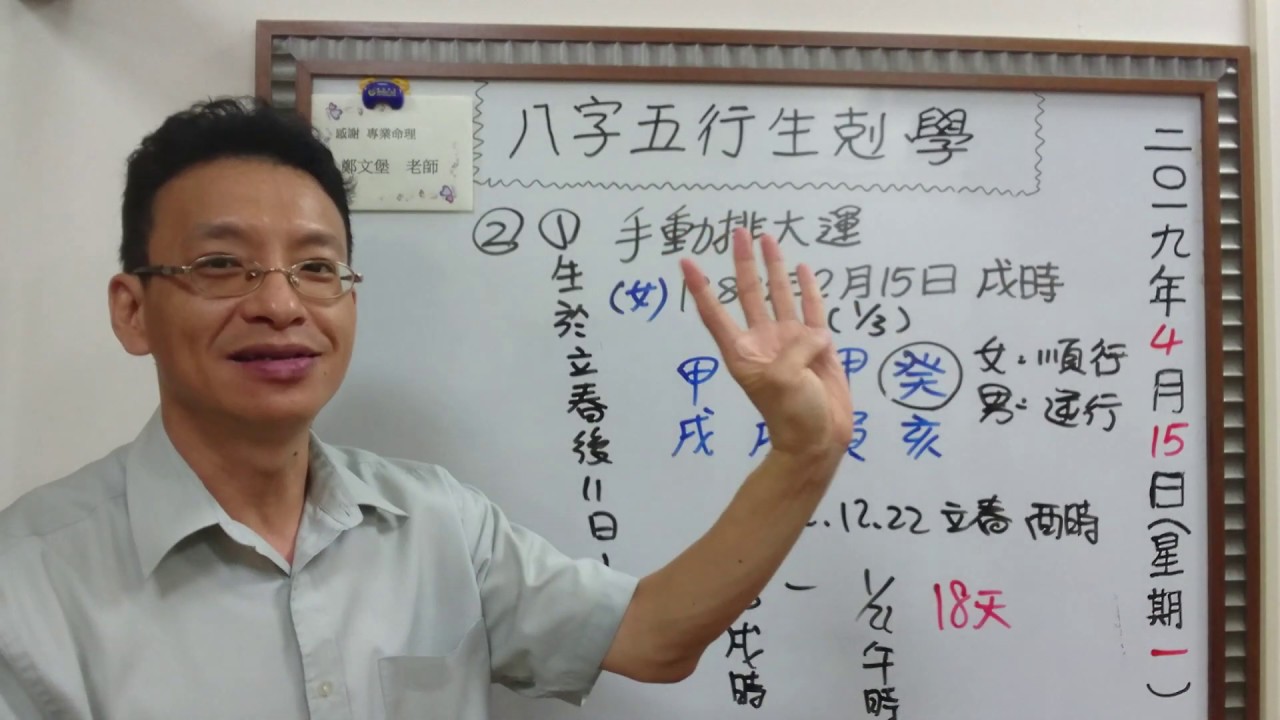 感謝 專業命理
鄭文堡 老師
八字五行生剋學
二〇一九年4月15日(星期一)
② ① 手動排大運
生於立春後11日
(女) 2月15日 戌時
(1/3)
甲 甲 癸
戌 寅 亥
女:順行
男:逆行
12.22 立春 酉時
戌時
午時
18天